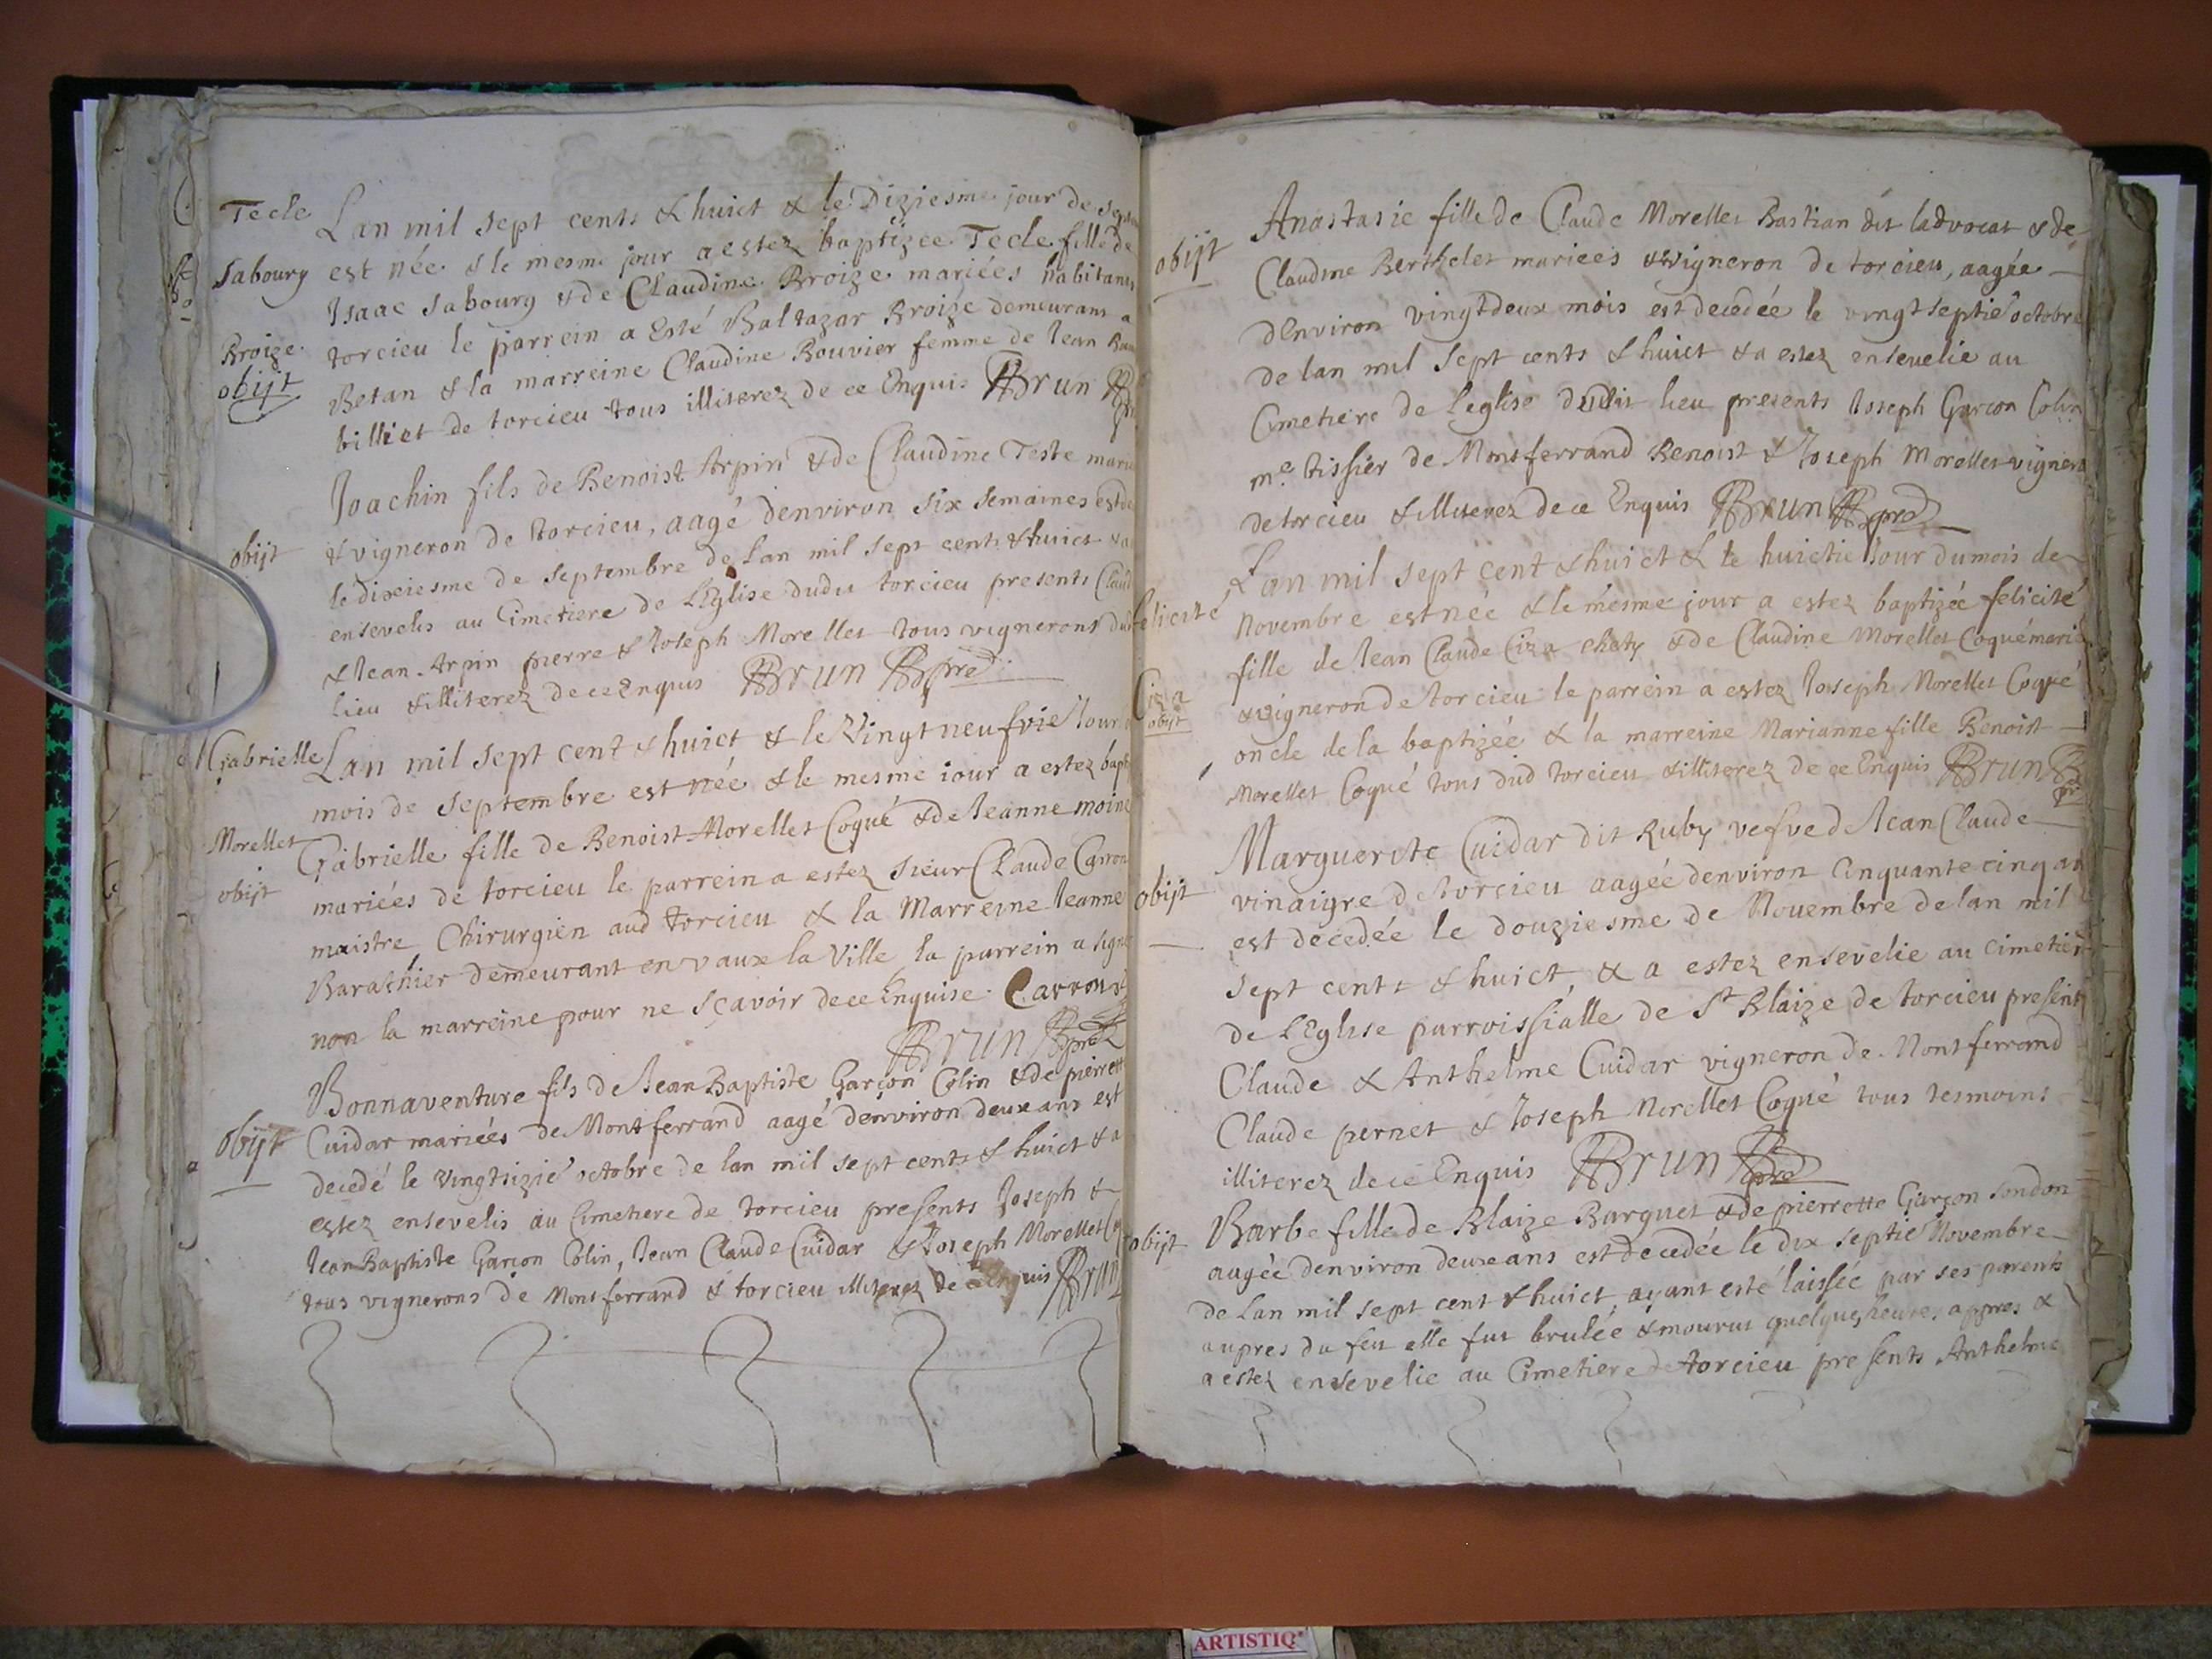 Tecle
Lan mil sept cents & huict & le Diziesme jour de
Sabourg
est née & le mesme jour a estez baptizee Tecle fille de
Isaac Sabourg & de Claudine Broize mariées habitants
Broize
torcieu le parrein a Esté Baltazar Broize demeurant a
obijt
Betan & la marreine Claudine Bouvier femme de Jean
billiet de torcieu tous illiterez de ce Enquis Brun
Joachin fils de Benoist Arpin & de Claudine Teste
obijt
& vigneron de torcieu, aagé denviron six semaines est
le dixciesme de septembre de Lan mil sept cents & huict
ensevelis au Cimetiere de LEglise dudit torcieu presents
& Jean Arpin pierre & Joseph Morellet tous vignerons
lieu & illiterez de ce Enquis Brun pre
Gabrielle
Lan mil sept cent & huict & le Vingt neufvie Jour
mois de Septembre est née & le mesme iour a estez
Morellet
Gabrielle fille de Benoist Morellet Coqué & de Jeanne moine
obijt
mariées de torcieu le parrein a estez sieur Claude Carron
maistre Chirurgien aud torcieu & la Marreine Jeanne
Barathier demeurant en vaux la Ville la parrein a signé
non la marreine pour ne sçavoir de ce Enquise. Carron
Brun pre
Bonnaventure fils de Jean Baptiste Garçon Colin & de pierrette
obijt
Cuidar mariées de Montferrand aagé denviron deux ans est
decedé le vingtsizié octobre de lan mil sept cents & huict & a
estez ensevelis au Cimetiere de torcieu presents Joseph &
Jean Baptiste Garcon Colin, Jean Claude Cuidar & Joseph Morellet
tous vignerons de Montferrand & torcieu illiterez de ce Enquis Brun
Anastasie fille de Claude Morellet Bastian dit ladvocat & de
obijt
Claudine Berthelet mariees & vigneron de torcieu, aagée
dEnviron vingtdeux mois est decedée le vingt septié octobre
de lan mil sept cents & huict & a estez ensevelie au
Cimetiere de leglise dudit lieu presents Joseph Garcon Colin
me tissier de Montferrand Benoist & Joseph Morellet vigneron
de torcieu & illiterez de ce Enquis Brun pre
Lan mil sept cent & huict & le huictie Jour du mois de
felicité
Novembre est née & le mesme jour a estez baptizée felicité
fille de Jean Claude Ciza chaty & de Claudine Morellet Coqué
Ciza
obijt
& vigneron de torcieu le parrein a estez Joseph Morellet Coqué
oncle de la baptizée & la marreine Marianne fille Benoist
Morellet Coqué tous dud torcieu & illiterez de ce Enquis Brun
Marguerite Cuidar dit Ruby vefve de Jean Claude
obijt
vinaigre de torcieu aagée denviron Cinquante cinq ans
est decedée le douziesme de Novembre de lan mil
sept cents & huict, & a estez ensevelie au Cimetiere
de LEglise parroissialle de St Blaize de torcieu presents
Claude & Anthelme Cuidar vigneron de Montferrand
Claude pernet & Joseph Morellet Coqué tous tesmoins
illiterez de ce Enquis Brun pre
Barbe fille de Blaize Barguet & de pierrette Garçon
obijt
aagée denviron deux ans est decedée le dix septié Novembre
de Lan mil sept cent & huict, ayant esté laissée par ses parents
aupres du feu elle fut brulée & mourut quelques heures appres &
a estez ensevelie au Cimetiere de torcieu presents Anthelme
ARTISTIQ